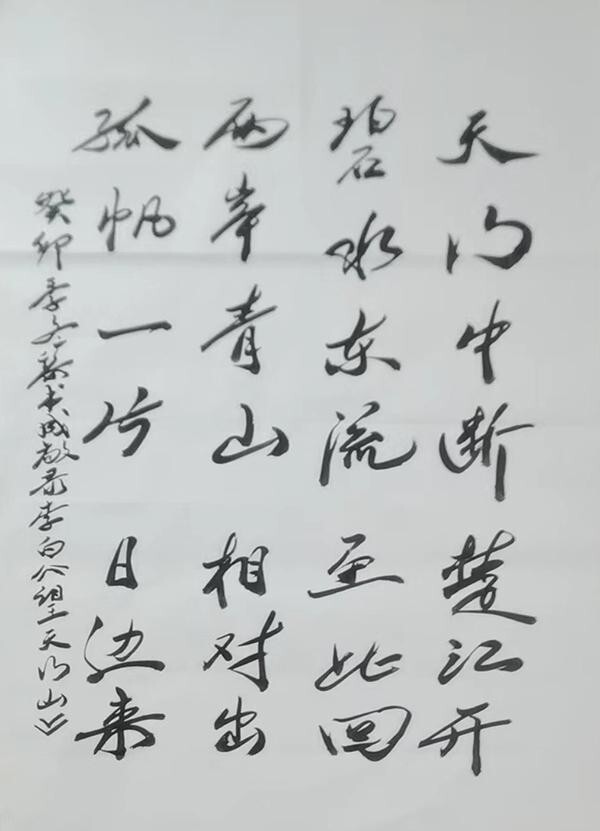 天门中断楚江开
碧水东流至此回
两岸青山相对出
孤帆一片日边来
癸卯季冬 录李白《望天门山》